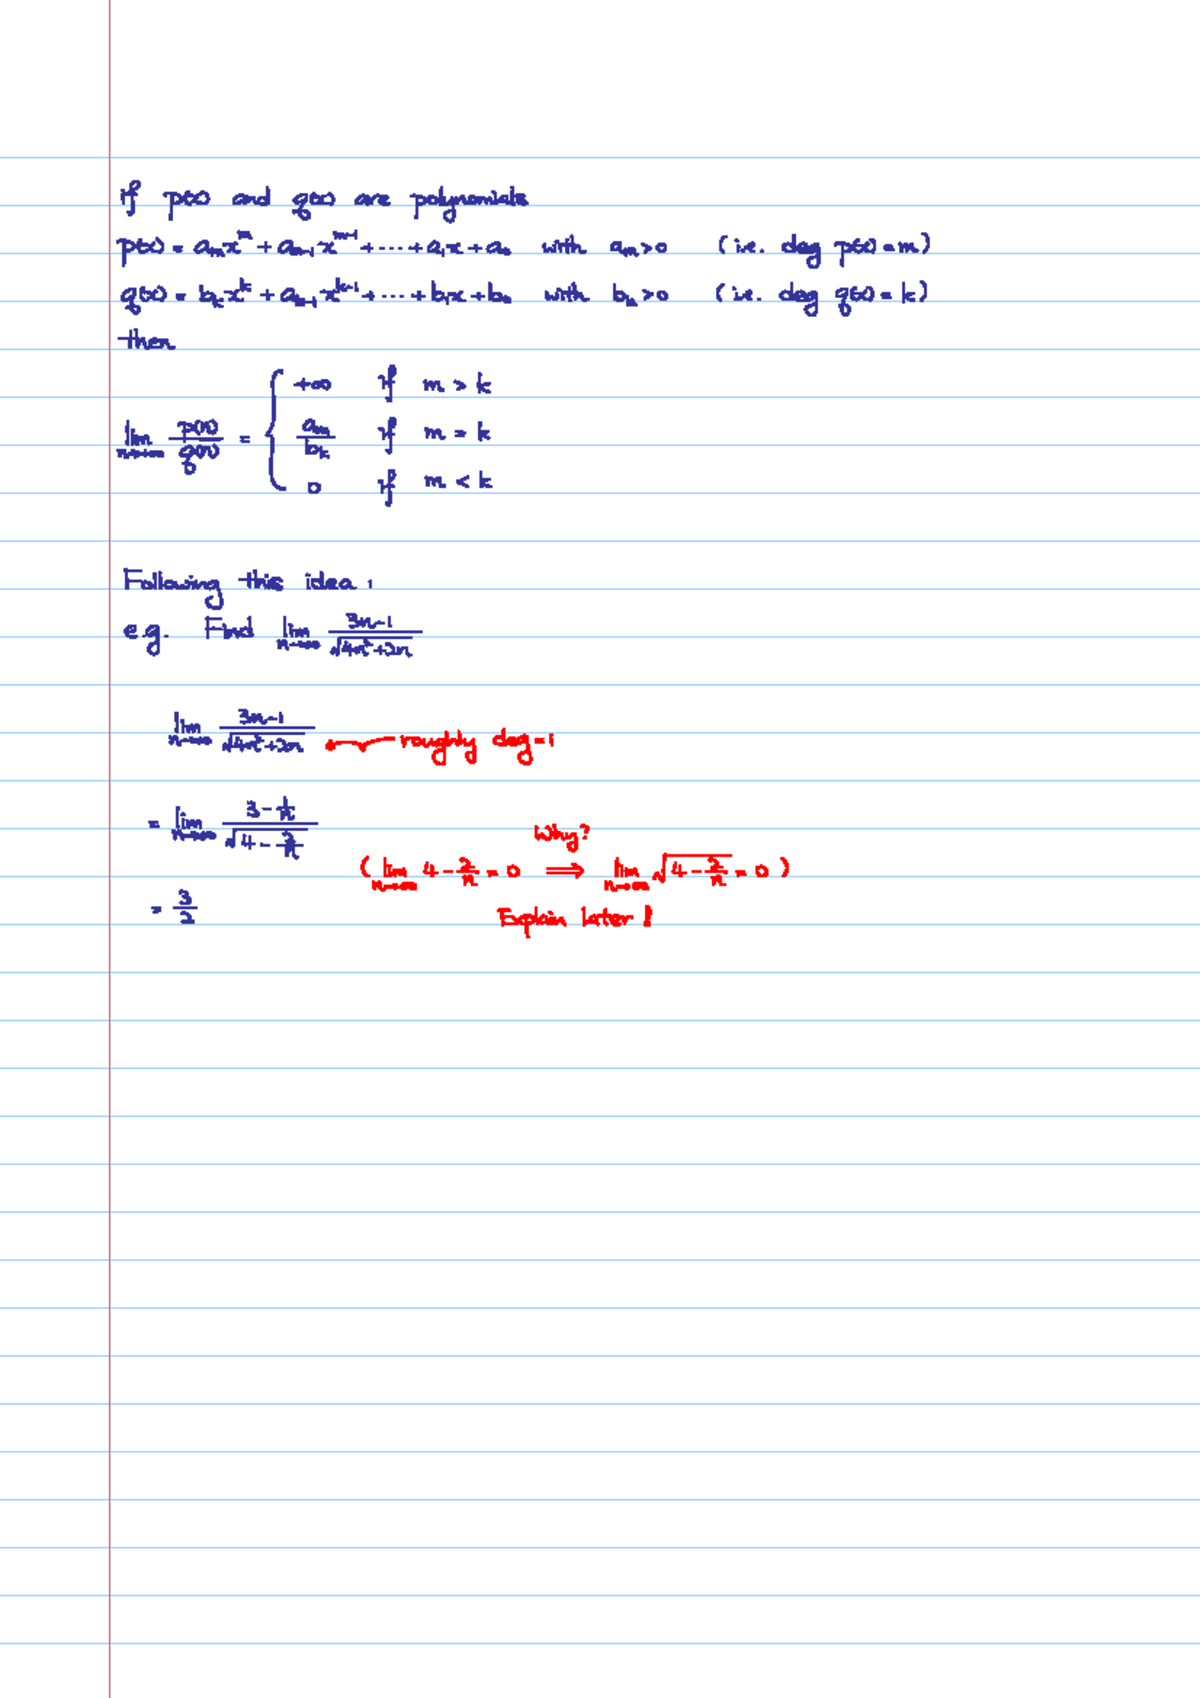 if p(x) and q(x) are polynomials
p(x) = aₘxᵐ + aₘ₋₁xᵐ⁻¹ + ... + a₁x + a₀ with aₘ > 0 (i.e. deg p(x) = m)
q(x) = bₖxᵏ + aₖ₋₁xᵏ⁻¹ + ... + b₁x + b₀ with bₖ > 0 (i.e. deg q(x) = k)
then
lim n→+∞ p(x)/q(x) = { +∞ if m > k
aₘ/bₖ if m = k
0 if m < k
Following this idea :
e.g. Find lim n→∞ (3n-1)/√(4n²+2n)
lim n→∞ (3n-1)/√(4n²+2n) roughly deg = 1
= lim n→∞ (3 - 1/n)/√(4 - 2/n)
Why?
( lim n→∞ 4 - 2/n = 0 ⟹ lim n→∞ √(4 - 2/n) = 0 )
= 3/2
Explain later !